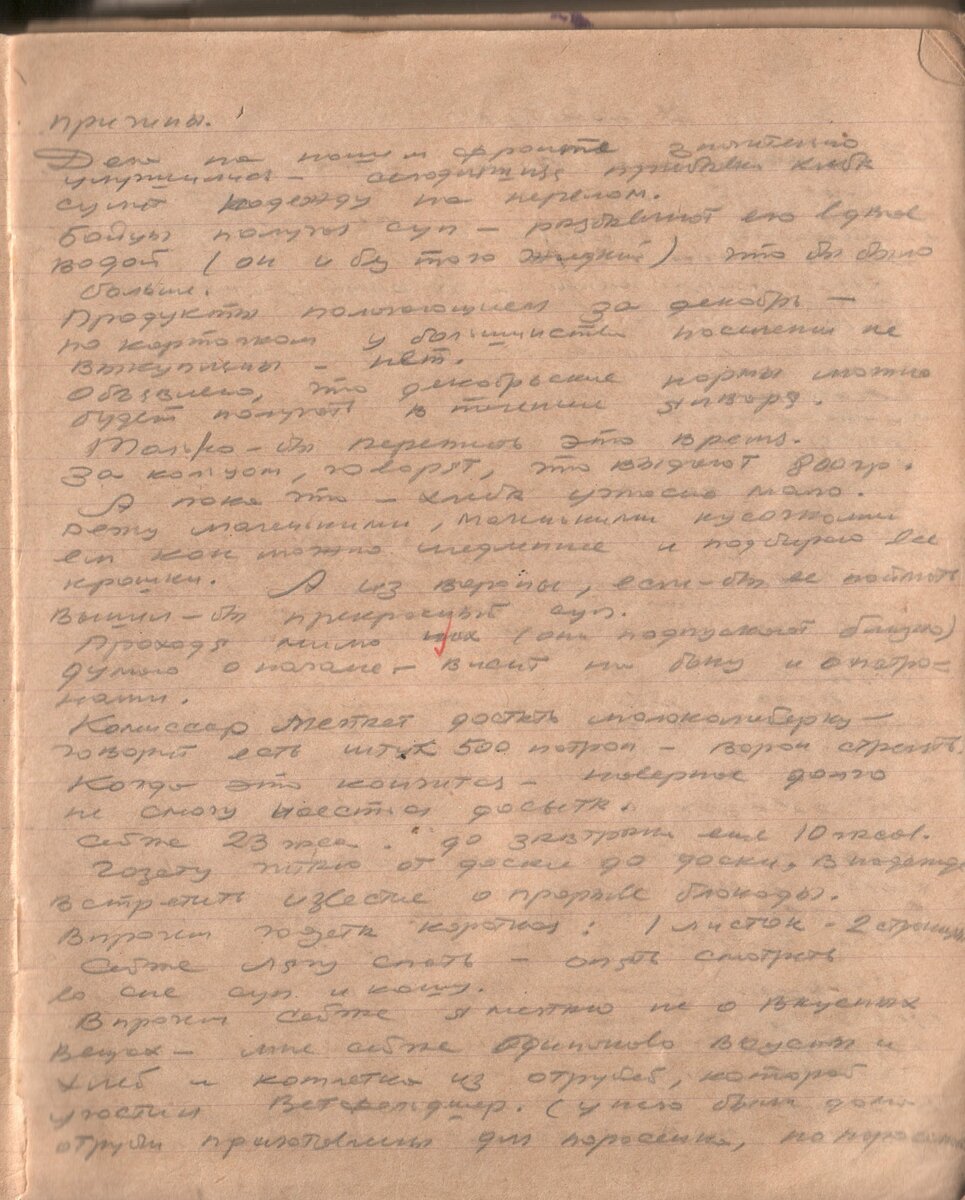 причины.
Дела на нашем фронте значительно
улучшились – сегодняшняя прибавка хлеба
сулит надежду на перелом.
Бойцы получая суп – разбавляют его вдвое
водой (он и без того жидкий) что бы было
больше.
Продукты полагающием за декабрь –
по карточкам у большинства населения не
выкуплены – нет.
Объявлено, что декабрьские нормы можно
будет получать в течении января.
Только-бы пережить это время.
За кольцом, говорят, что выдают 800 гр.
А пока что – хлеба ужасно мало.
Режу маленькими, маленькими кусочками
ем как можно медленнее и подбираю все
крошки. А из вороны, если-бы ее поймать
вышел-бы прекрасный суп.
Проходя мимо них (они подпускают близко)
думаю о нагане – висит на боку и с патро-
нами.
Комиссар мечтает достать малокалиберку –
говорит есть штук 500 патрон – ворон стрелять.
Когда это кончится – наверное долго
не смогу наесться досыта.
Сейчас 23 часа. до завтрака еще 10 часов.
Газету читаю от доски до доски, в надежде
встретить известие о прорыве блокады.
Впрочем газета короткая: 1 листок - 2 страницы
Сейчас лягу спать – опять смотреть
во сне суп и кашу.
Впрочем сейчас я мечтаю не о вкусных
вещах – мне сейчас одинаково вкусны и
хлеб и котлетка из отрубей, которой
угостил Ветфельдшер. (у него были дома
отруби приготовлены для поросенка, но поросенка